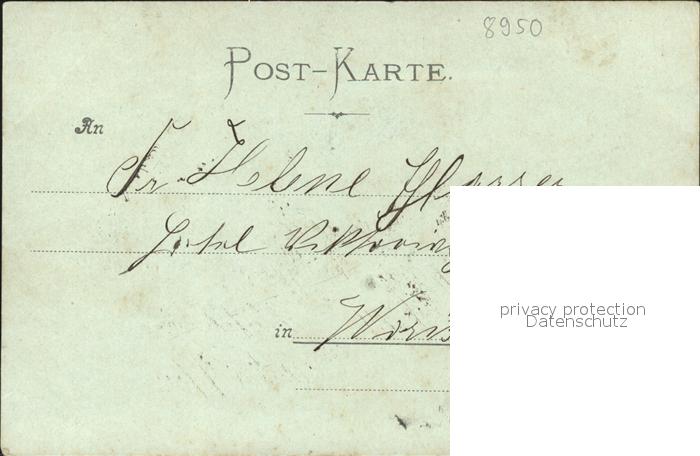 8950
POST-KARTE.
An
Fr. Helene
Hotel Viktoria
in
privacy protection
Datenschutz